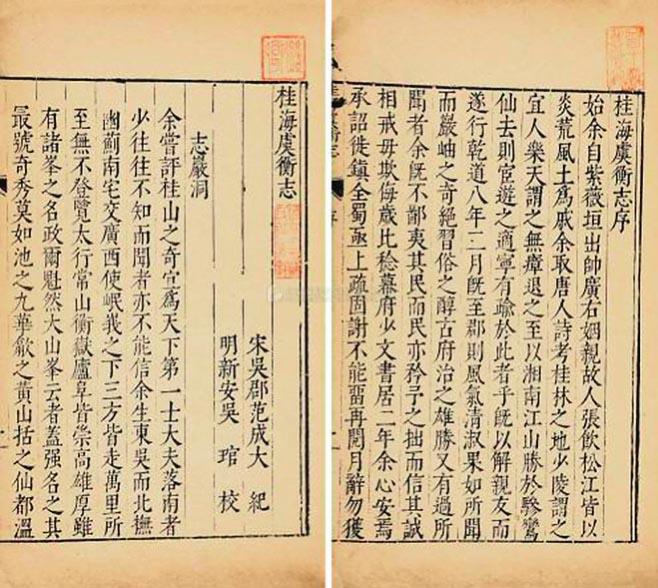 桂海虞衡志序
始余自紫薇垣出帥廣右姻親故人張飲松江皆以
炎荒風土爲戚余取唐人詩考桂林之地少陵謂之
宜人樂天謂之無瘴退之至以湘南江山勝於驂鸞
仙去則宦遊之適寧有踰於此者乎旣以解親友而
遂行乾道八年三月旣至郡則風氣清淑果如所聞
而巖岫之奇絕習俗之醇古府治之雄勝又有過所
聞者余旣不鄙夷其民而民亦矜予之拙而信其誠
相戒毋欺侮歲比稔幕府少文書居二年余心安焉
承詔徙鎮全蜀亟上疏固謝不能留再閱月辭勿獲
桂海虞衡志
宋吳郡范成大 紀
明新安吳 琯 校
志巖洞
余嘗評桂山之奇宜爲天下第一士大夫落南者
少往往不知而聞者亦不能信余生東吳而北撫
幽薊南宅交廣西使岷峩之下三方皆走萬里所
至無不登覽太行常山衡嶽廬阜皆崇高雄厚雖
有諸峯之名政爾魁然大山峯云者蓋强名之其
最號奇秀莫如池之九華歙之黃山括之仙都溫